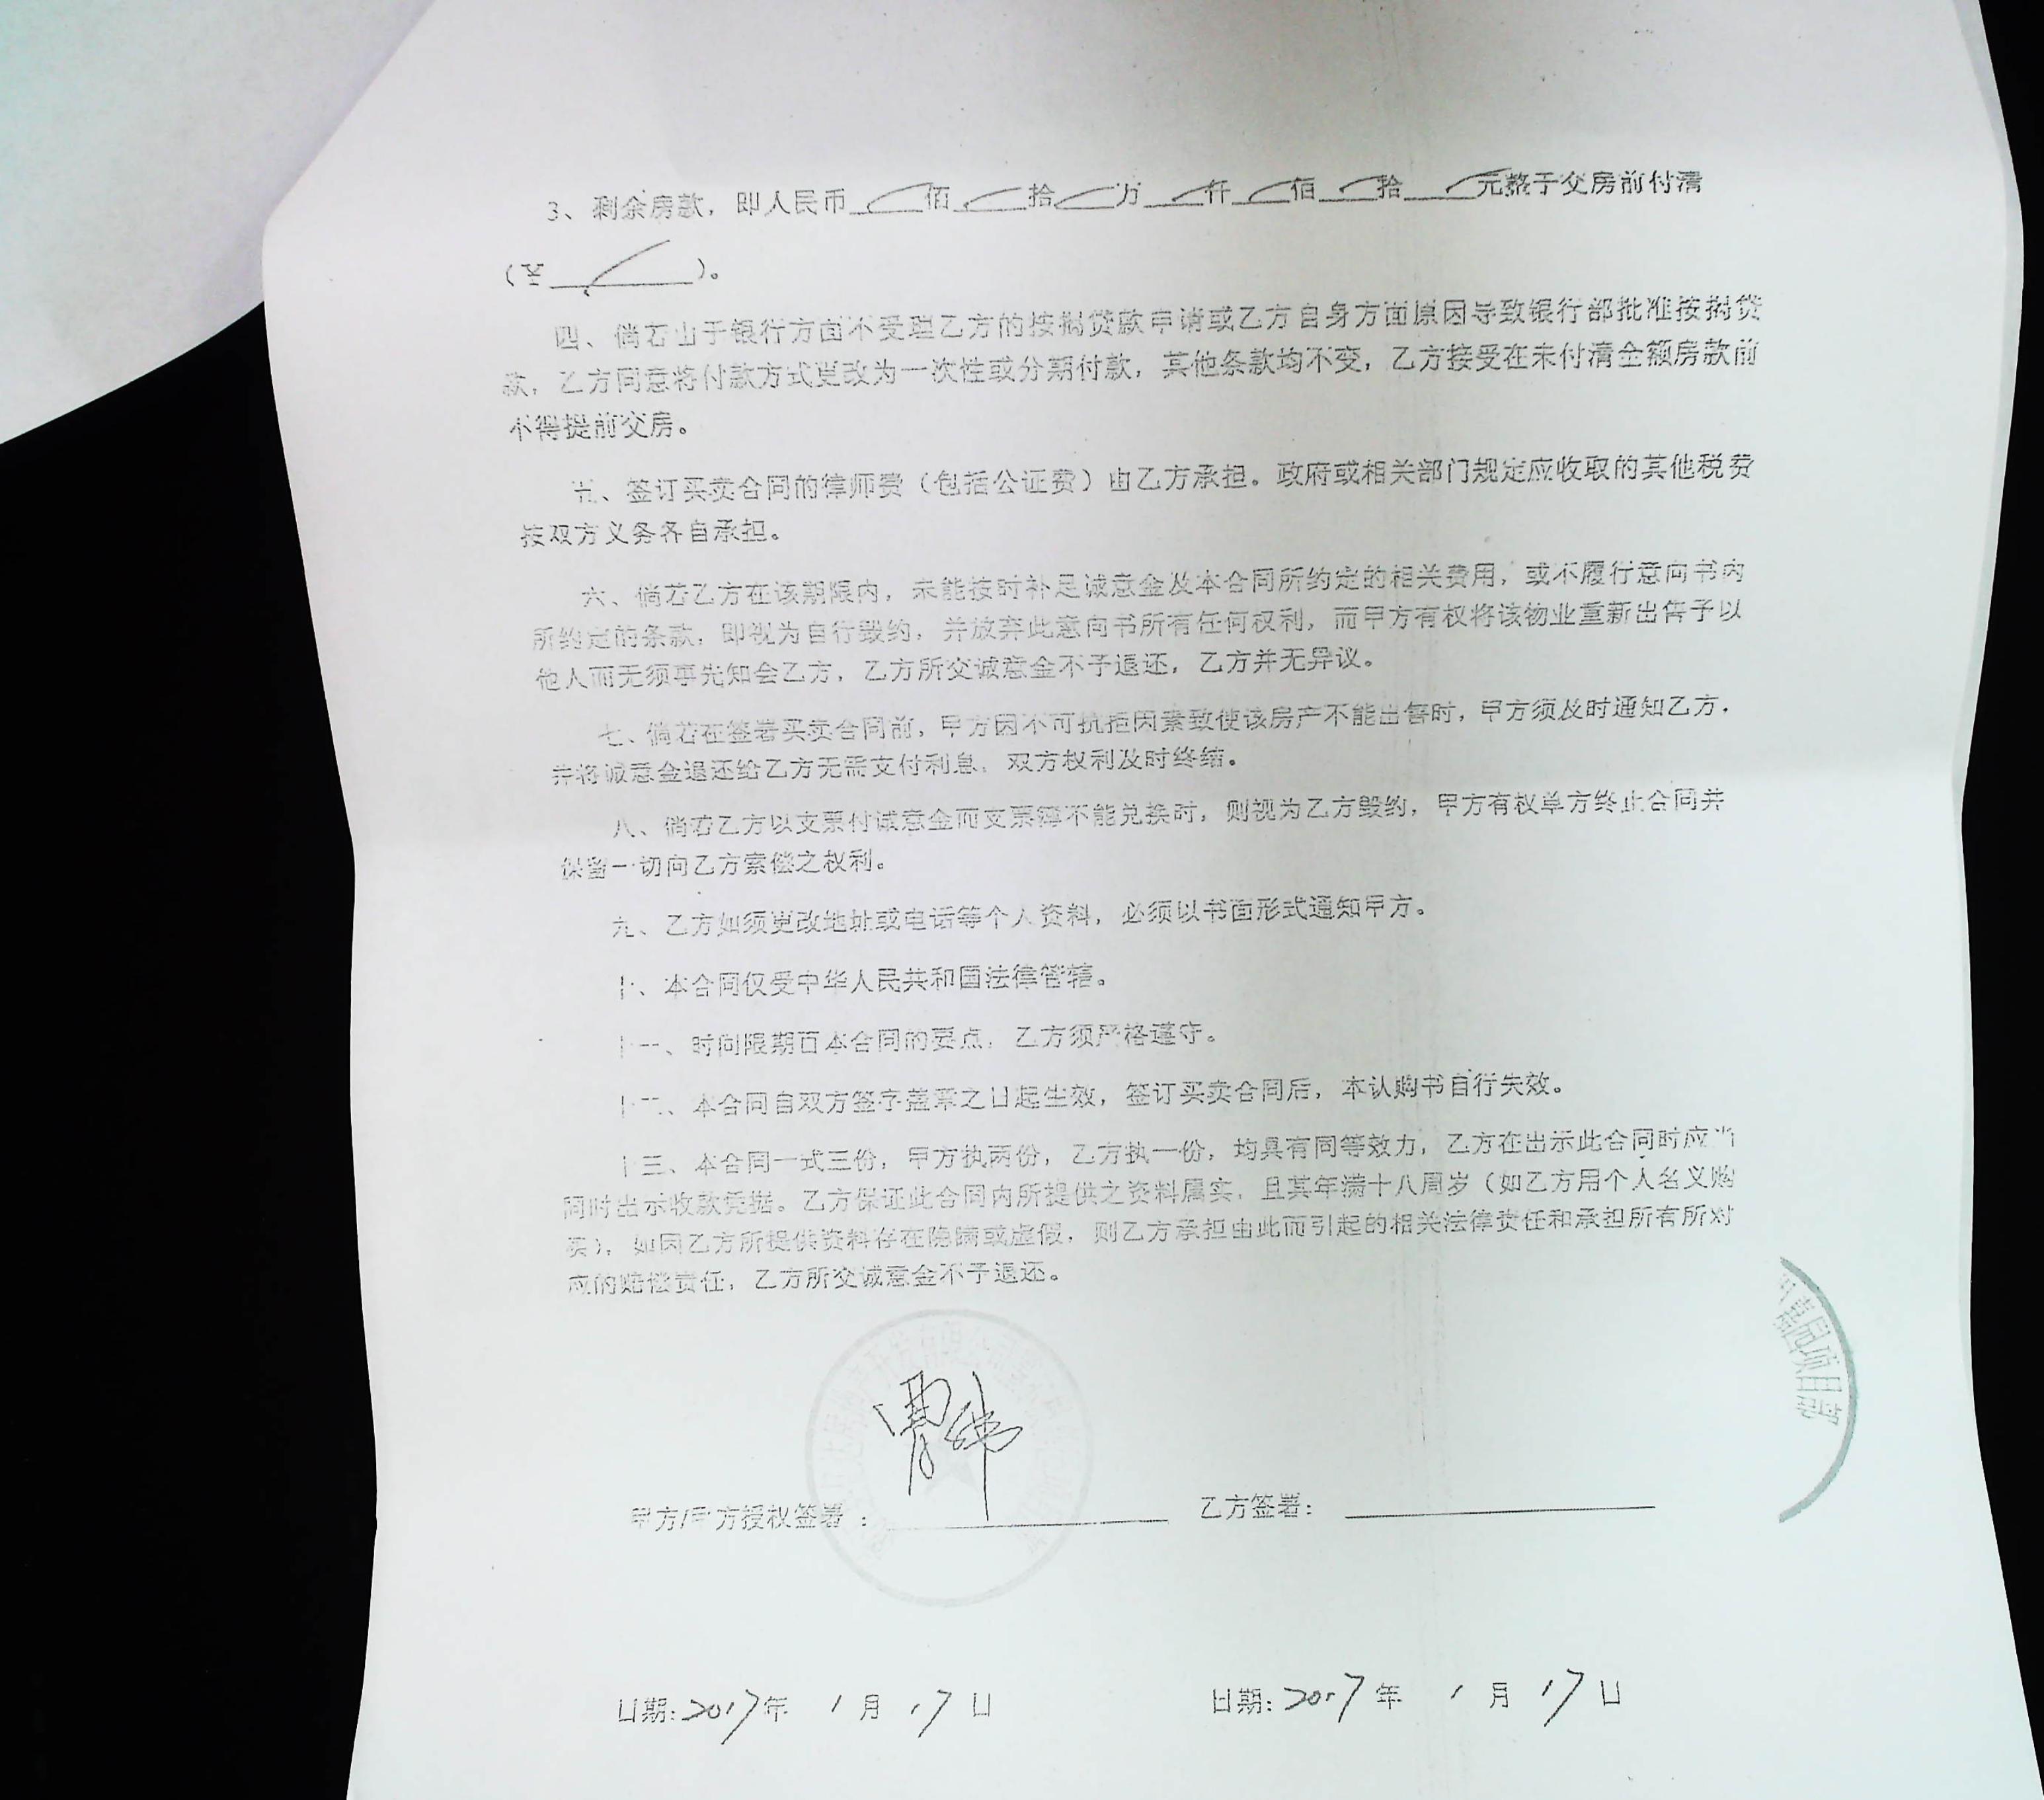 3、剩余房款，即人民币____佰____拾____万____仟____佰____拾____元整于交房前付清
（¥______）。
四、倘若由于银行方面不受理乙方的按揭贷款申请或乙方自身方面原因导致银行部批准按揭贷
款，乙方同意将付款方式更改为一次性或分期付款，其他条款均不变，乙方接受在未付清全额房款前
不得提前交房。
五、签订买卖合同的律师费（包括公证费）由乙方承担。政府或相关部门规定应收取的其他税费
按双方义务各自承担。
六、倘若乙方在该期限内，未能按时补足诚意金及本合同所约定的相关费用，或不履行意向书内
所约定的条款，即视为自行毁约，并放弃此意向书所有任何权利，而甲方有权将该物业重新出售予以
他人而无须事先知会乙方，乙方所交诚意金不予退还，乙方并无异议。
七、倘若在签署买卖合同前，甲方因不可抗拒因素致使该房产不能出售时，甲方须及时通知乙方，
并将诚意金退还给乙方无需支付利息，双方权利及时终结。
八、倘若乙方以支票付诚意金而支票簿不能兑换时，则视为乙方毁约，甲方有权单方终止合同并
保留一切向乙方索偿之权利。
九、乙方如须更改地址或电话等个人资料，必须以书面形式通知甲方。
十、本合同仅受中华人民共和国法律管辖。
十一、时间限期百本合同的要点，乙方须严格遵守。
十二、本合同自双方签字盖章之日起生效，签订买卖合同后，本认购书自行失效。
十三、本合同一式三份，甲方执两份，乙方执一份，均具有同等效力，乙方在出示此合同时应当
同时出示收款凭据。乙方保证此合同内所提供之资料属实，且其年满十八周岁（如乙方用个人名义购
买），如因乙方所提供资料存在隐瞒或虚假，则乙方承担由此而引起的相关法律责任和承担所有所对
应的赔偿责任，乙方所交诚意金不予退还。
园项目部
甲方/甲方授权签署：__________ 乙方签署：__________
日期:2017年 1月 17日 日期:2017年 1月 17日